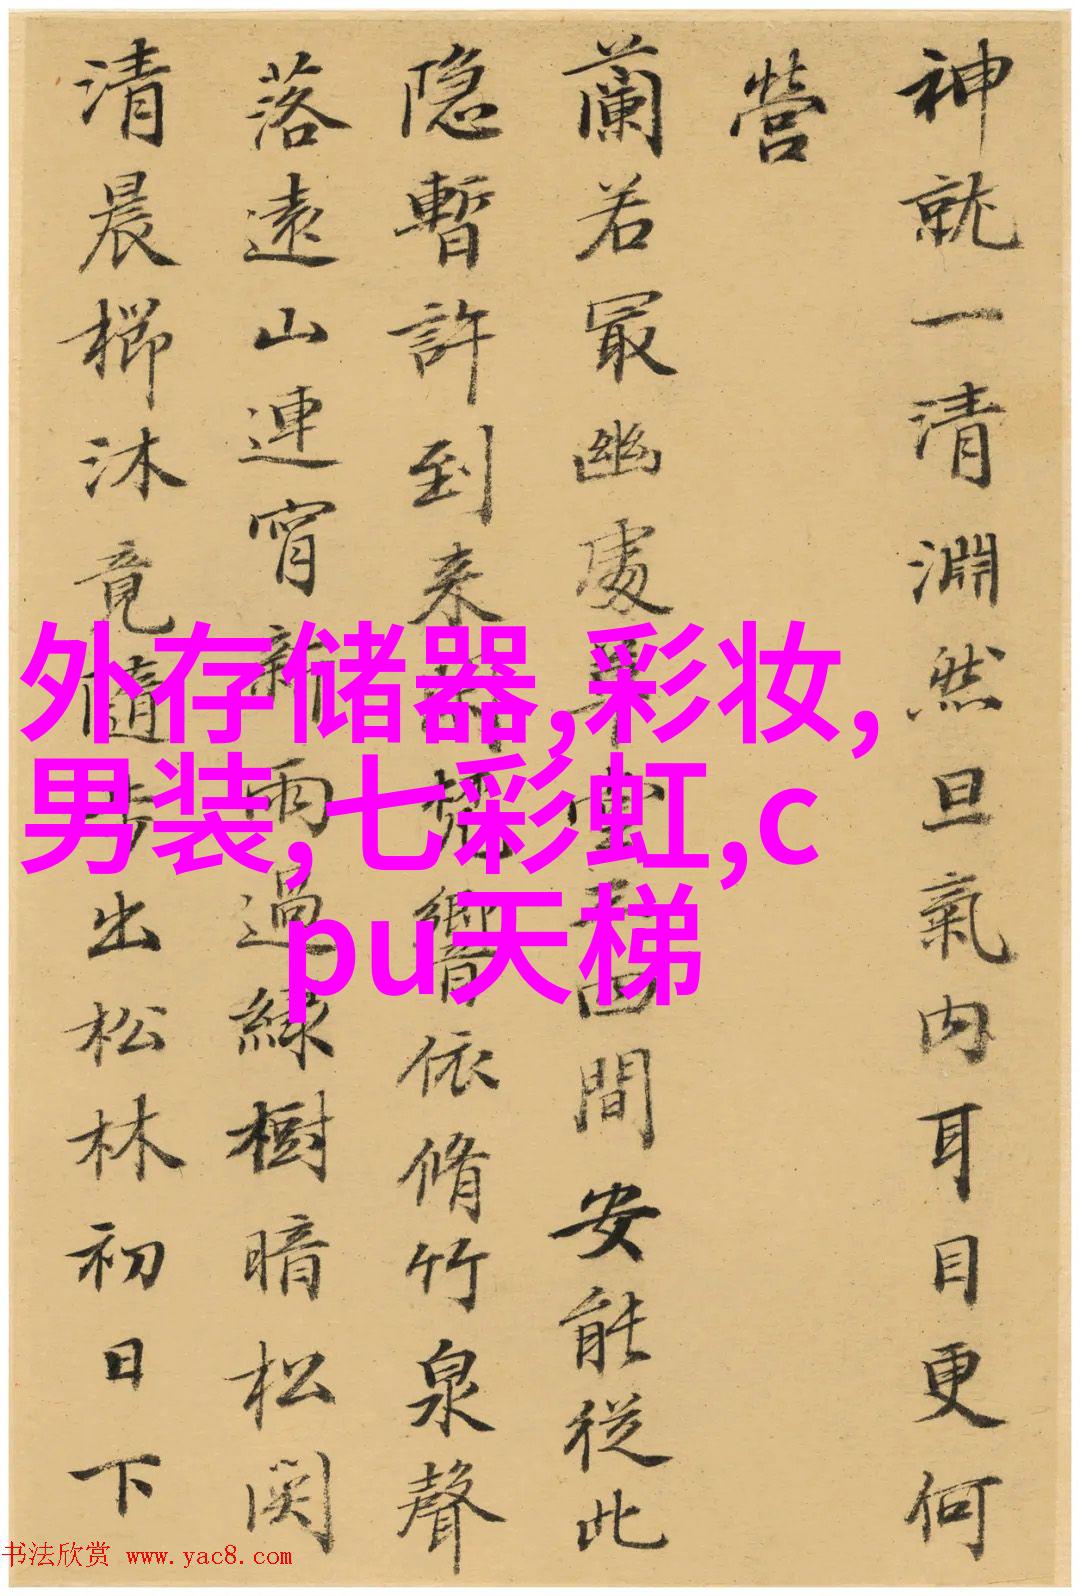 神就一清淵然旦氣内耳目更何
營
蘭若冣幽處
間安能從此
隐暫許到来
響依脩竹泉聲
落遠山連宵新雨過緑樹暗松関
清晨櫛沐竟隨步出松林初日下
外存储器,彩妆,
男装,七彩虹,c
pu天梯
书法欣赏 www.yac8.com